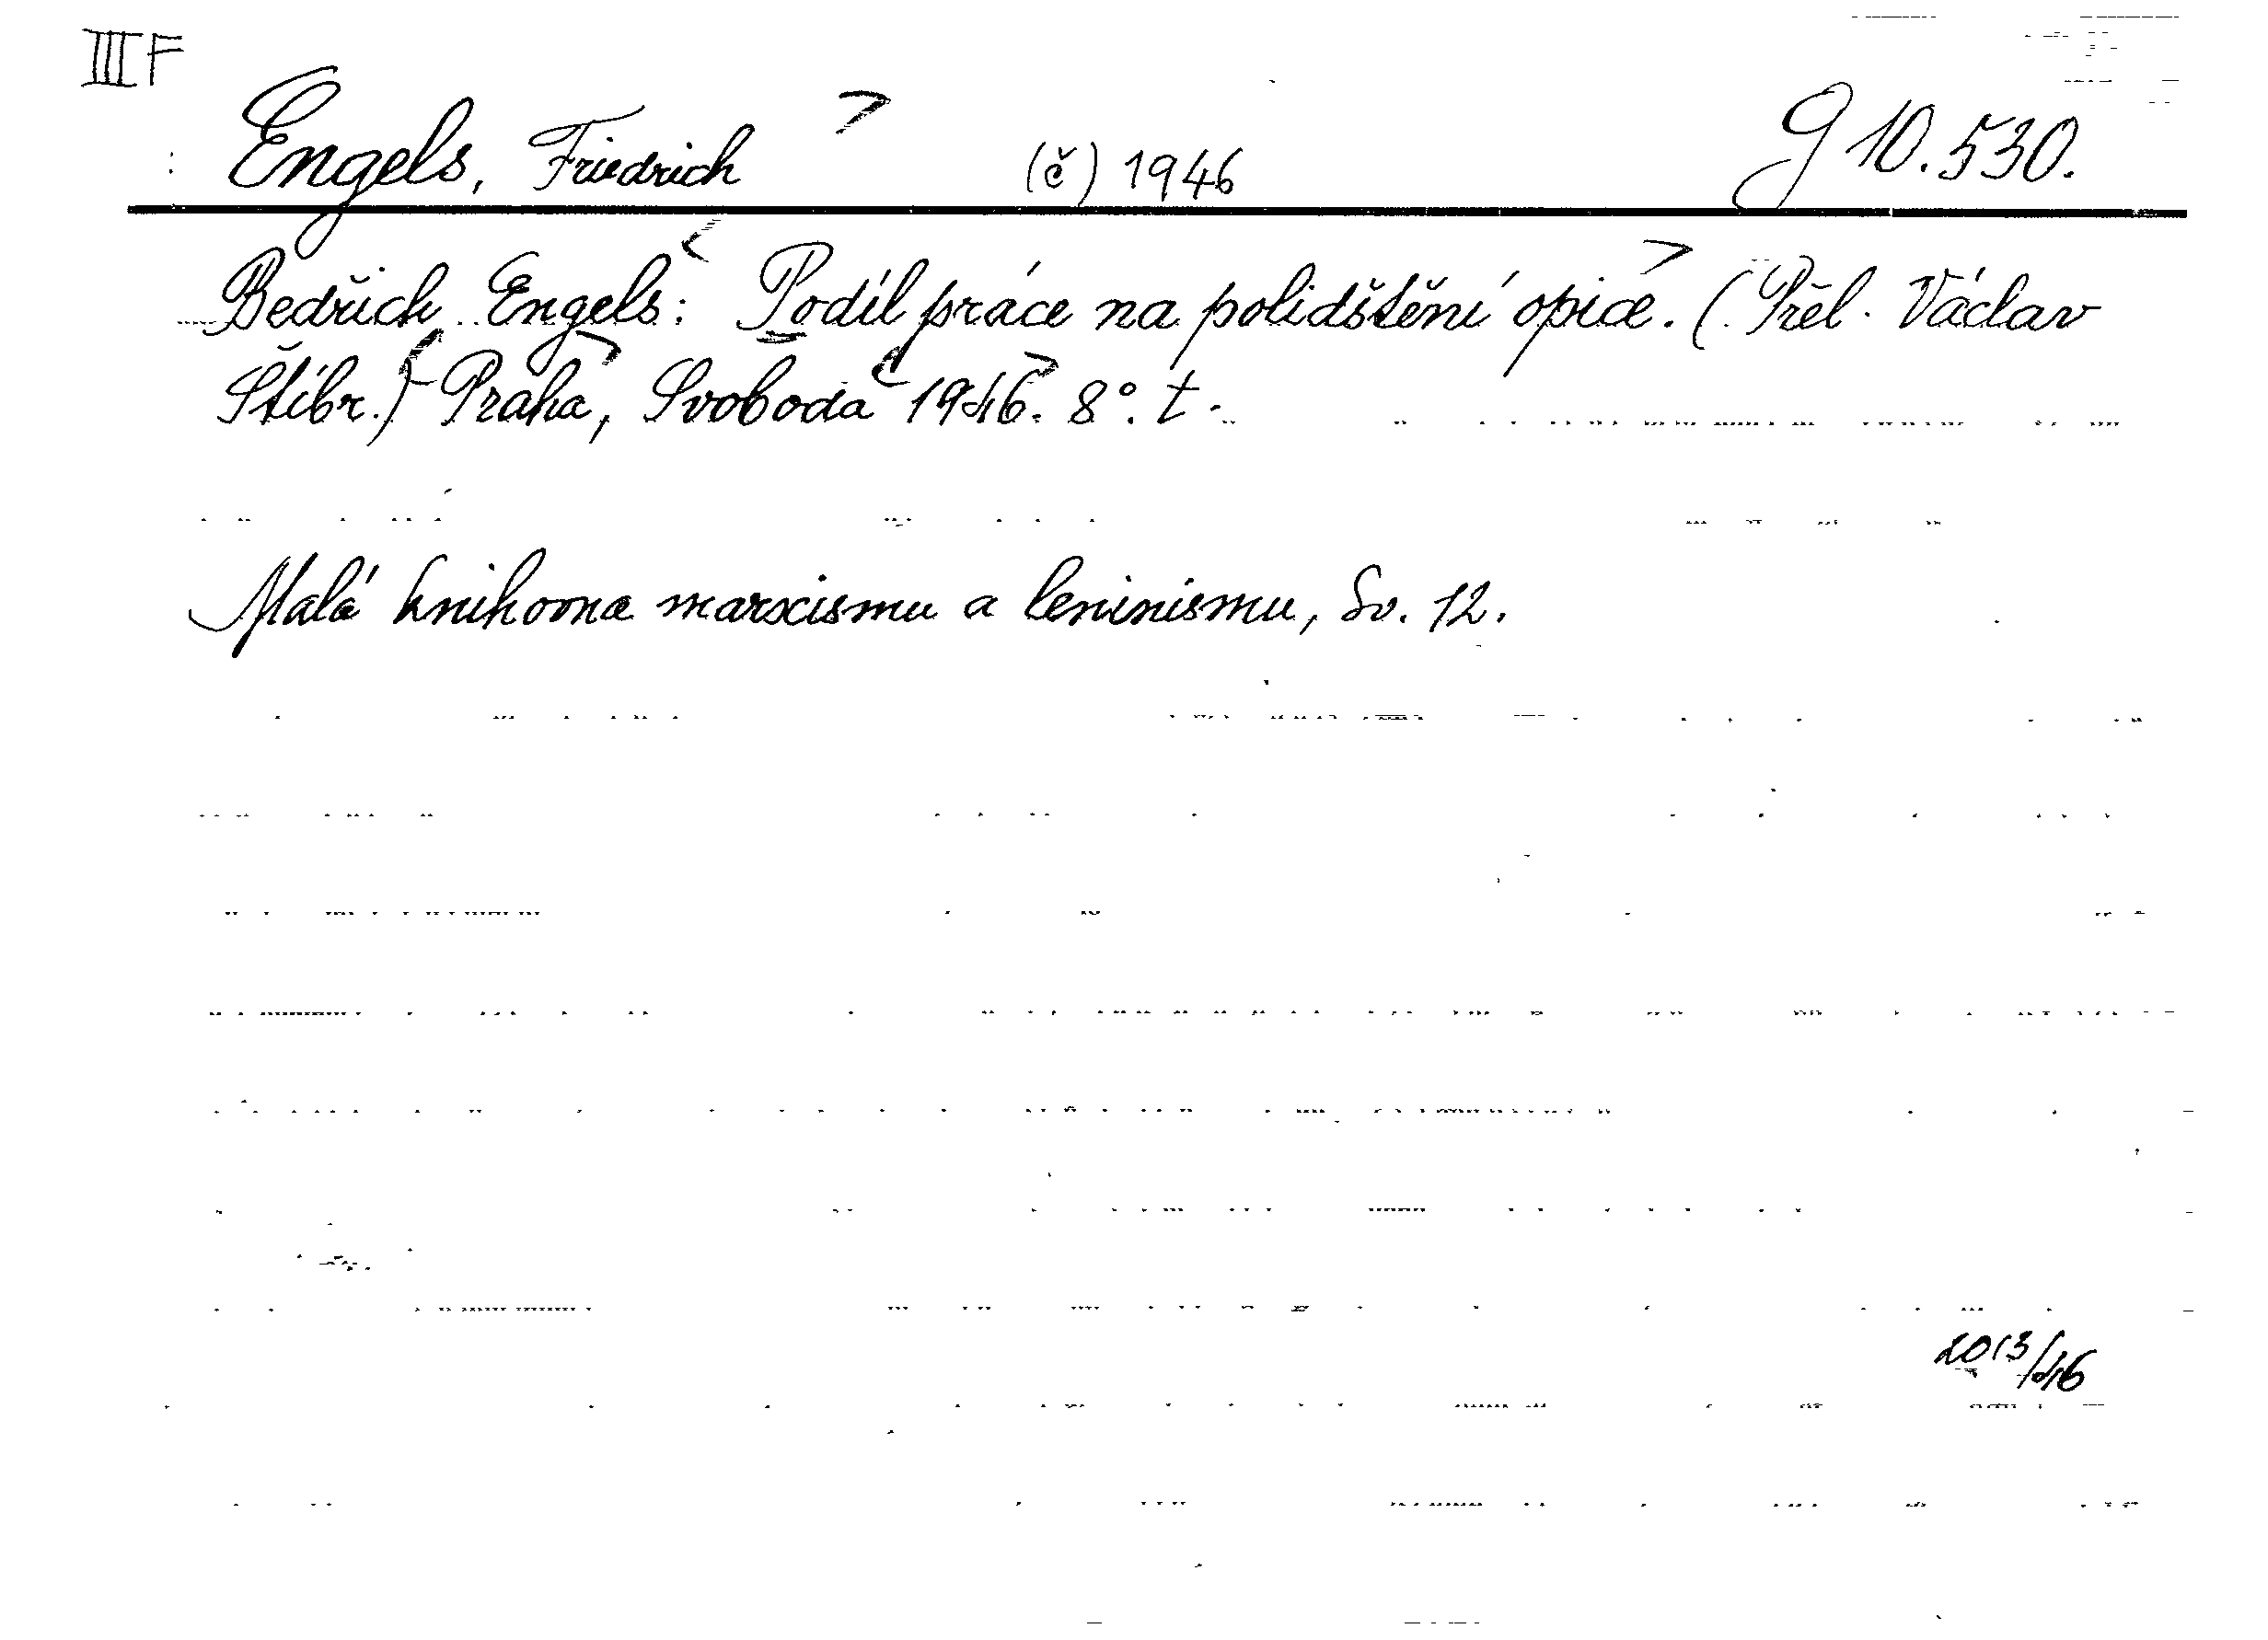 III F
Engels, Friedrich (č) 1946 G 10.530.
Bedřich Engels: Podíl práce na polidštění opice. (Přel. Václav
Štíbr.) Praha, Svoboda 1946. 8°. t.
Malá knihovna marxismu a leninismu, Sv. 12.
2013/46